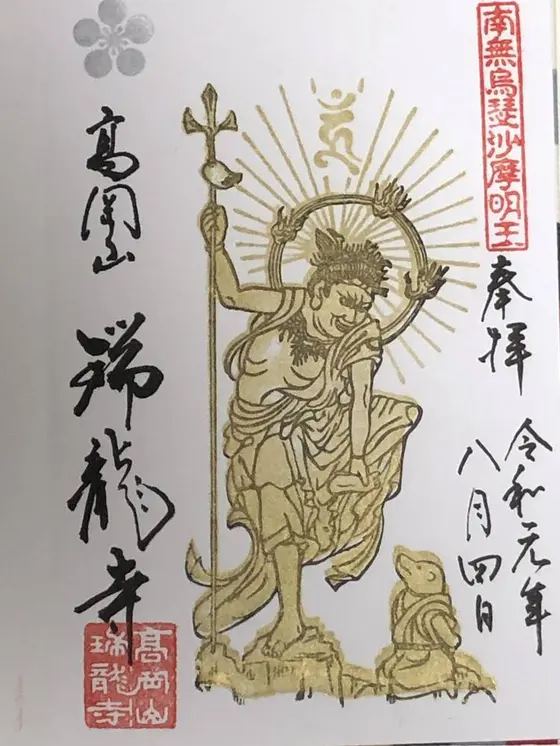 南無烏瑟沙摩明王
奉拝
令和元年
八月四日
高岡山
瑞龍寺
高岡山
瑞龍寺